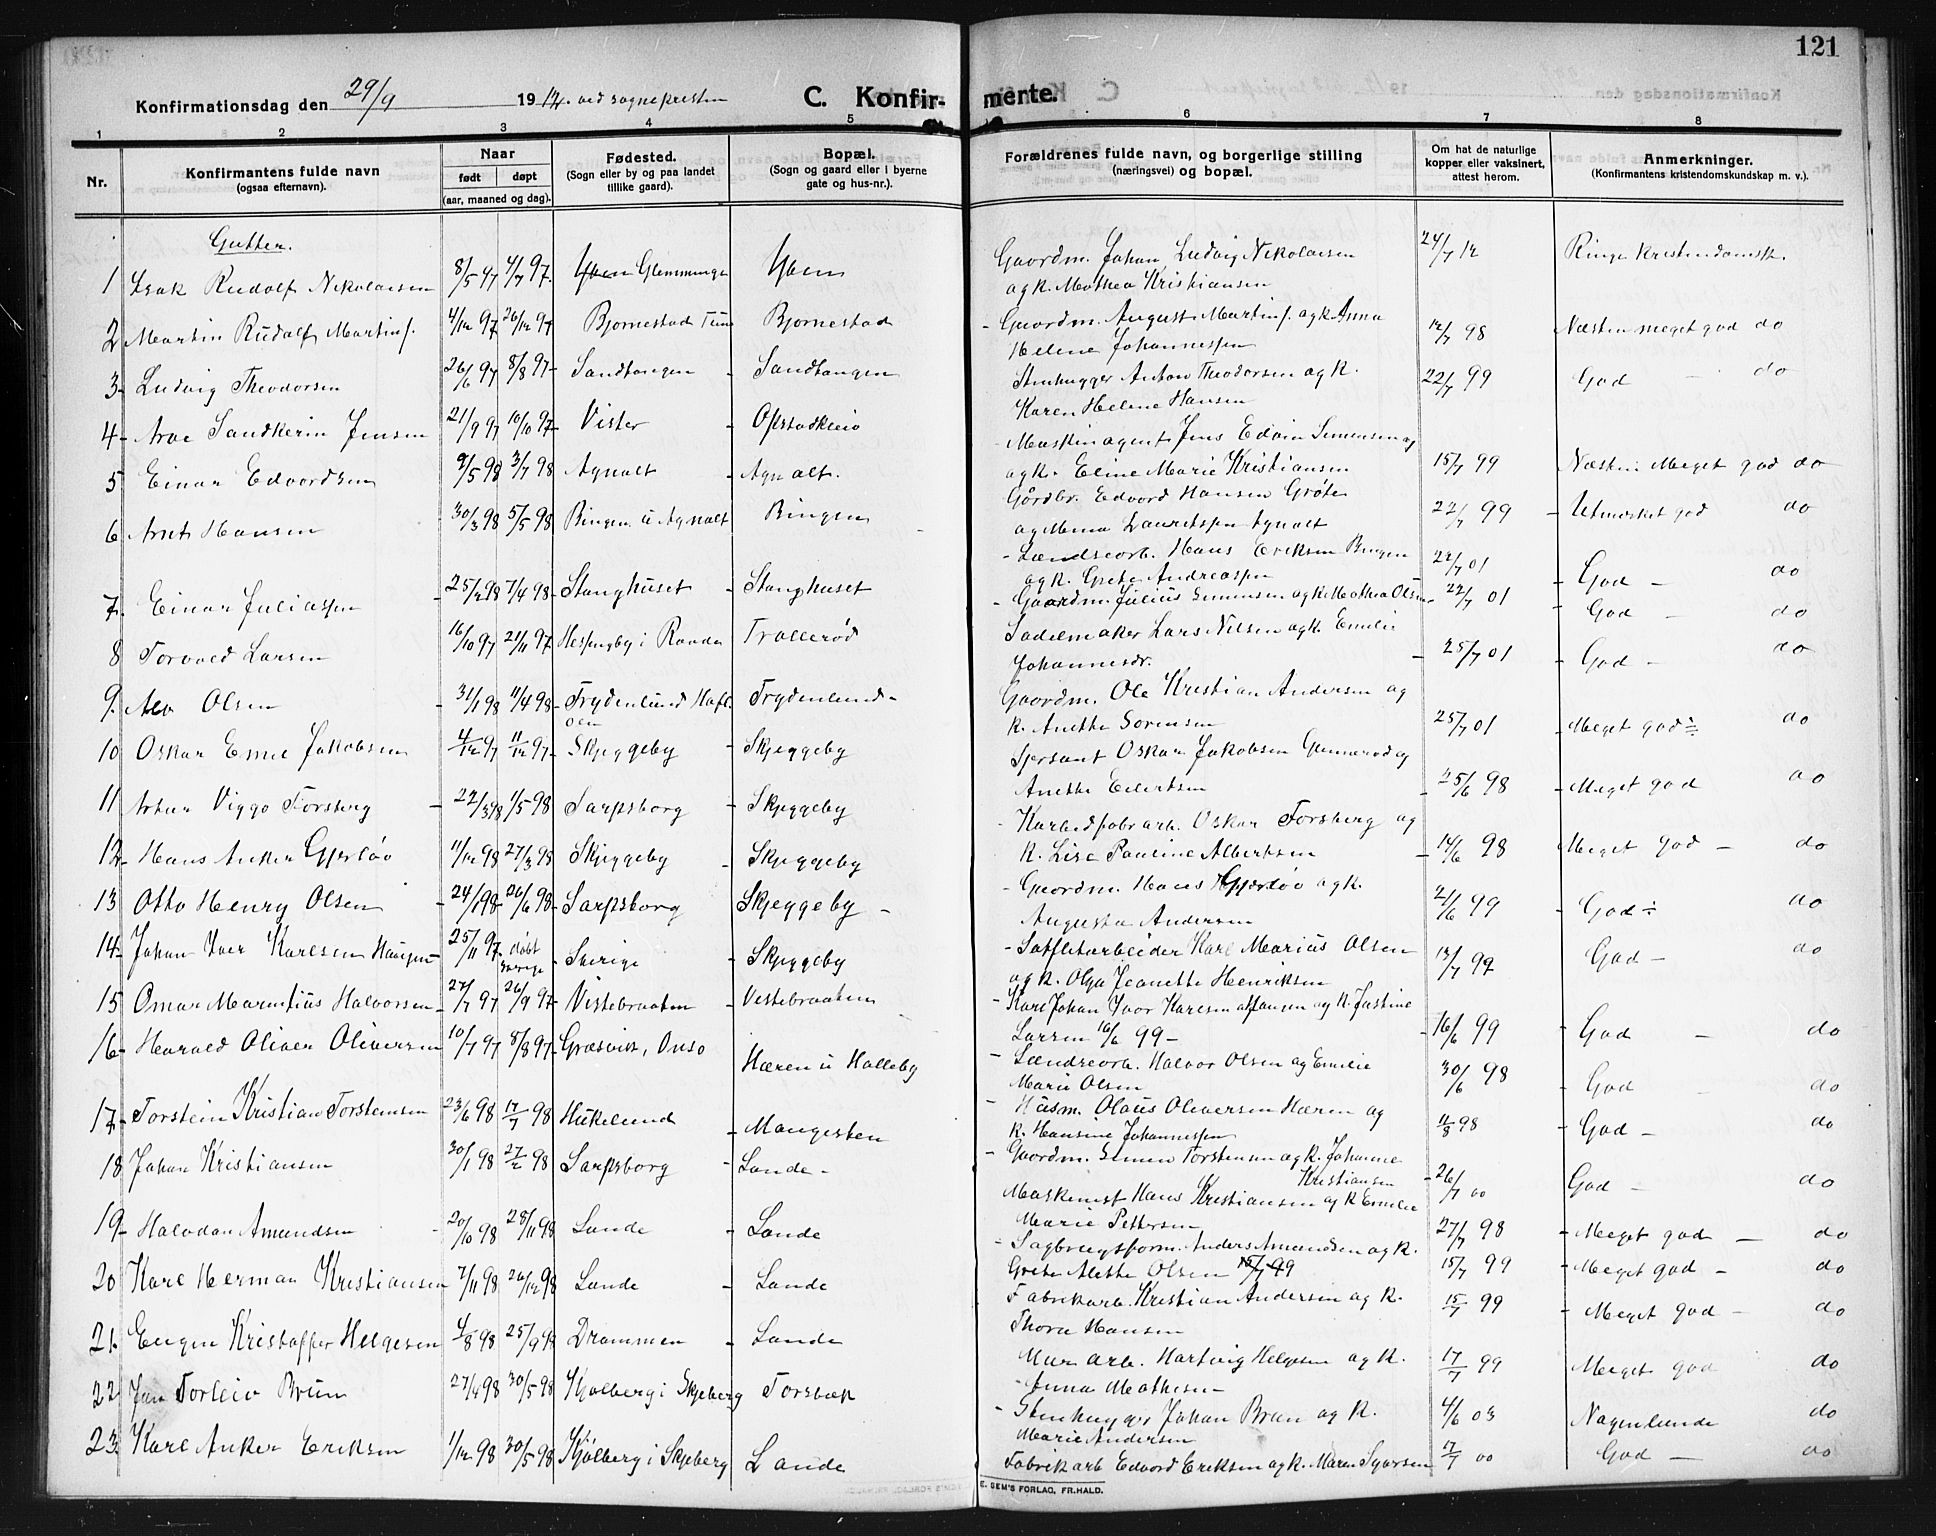 121
Konfirmationsdag den 29/9 1912. ved sognepresten
C. Konfirmerte.
1 2 3 4 5 6 7 8
Nr.
Konfirmantens fulde navn
(ogsaa efternavn).
Naar
født døpt
(aar, maaned og dag).
Fødested.
(Sogn eller by og paa landet
tillike gaard).
Bopæl.
(Sogn og gaard eller i byerne
gate og hus-nr.).
Forældrenes fulde navn, og borgerlige stilling
(næringsvei) og bopæl.
Om hat de naturlige
kopper eller vaksinert,
attest herom.
Anmerkninger.
(Konfirmantens kristendomskundskap m. v.).
Gutter.
1 Isak Rudolf Nikolaisen 8/5 97 4/7 97. Glemminge
Gaardm. Johan Ludvig Nikolaisen 24/7 12 Ringe Kristendomsk.
og k. Mathea Kristiansen
2 Martin Rudolf Martins. 4/12 97 26/12 97 Bjørnestad Tune Bjornestad
- Gaardm. August Martins. og k Anna 12/7 98 Næsten meget god do
Helene Johannessen
3- Ludvig Theodorsen 26/6 97 8/8 97- Sandtangen - Sandtangen
Stenhugger Anton Theodorsen og k. 22/7 99 God - do
Karen Helene Hansen
4- Sandkerin Jensen 21/9 97 10/10 97- Vister - Opstadkleiv
- Maskinagent Jens Edvin Simensen og 15/7 99 Næsten Meget god do
og k. Eline Marie Kristiansen
5 Einar Edvardsen 9/5 98 3/7 98 Agnalt - Agnalt.
Gårdbr. Edvard Hansen Grøte 22/7 99 - Utmerket god do
og Mina Lauritssen Agnalt
6- Arnt Hansen 30/3 98 5/5 98 Bingen u Agnalt Bingen
- Landseorb. Hans Eriksen Bingen 22/7 01 God - do
og k. Grete Andreassen
7. Einar Juliassen - 25/2 98 7/4 98- Stanghuset - Stanghuset
- Gaardm. Julius Simensen og k Mathea Olsen - 22/7 01 - God - do
8 Torvald Larsen 16/10 97 21/11 97 Hesengby i Raade Trollerød
Sadelmaker Lars Nilsen og k. Emilie
Johannesdr. - 25/7 01 - God - do
9. Alv Olsen - 31/1 98 11/4 98- Frydenlund Hafs- Frydenlund-
Gaardm. Ole Kristian Andersen og
k. Anette Sørensen 25/7 01 - Meget god ÷ do
10 Oskar Emil Jakobsen 4/12 97 11/12 97- Skjeggeby - Skjeggeby
Sersant Oskar Jakobsen Gunnerød og
Anette Eilertsen - 25/6 98 - Meget god do
11 Artur Viggo Forsberg - 22/3 98 1/5 98 Sarpsborg - Skjeggeby
- Karbidfabrarb. Oskar Forsberg og
k. Lise Pauline Albertsen - 14/6 98 Meget god - do
12- Hans Anker Gjerløv 11/12 98 27/3 98 Skjeggeby - Skjeggeby
- Gaardm. Hans Gjerløv og k.
Augusta Andersen 21/6 99 - God ÷ do
13 Otto Henry Olsen - 24/1 98- 26/6 98 Sarpsborg Skjeggeby -
- Sulfitarbeider Karl Marius Olsen
og k. Olga Jeanette Henriksen 13/7 97 God - do
14- Johan Iver Karlsen Haugen 25/11 97. døbt Sverige - Sverige - Skjeggeby
- Karl Johan Ivar Karlsen og k. Justine
Larsen 16/6 99 - - 16/6 99 God - do
15 Omar Marentius Halvorsen- 27/7 97 26/9 97- Vistebraaten - Vestebraaten
- Landseorb. Halvor Olsen og Emilie
Marie Olsen 30/6 98 God do
16- Harald Oliver Oliversen 10/7 97 8/8 97- Græsvik, Onsø Hæren u Halleby
- Husm. Olaus Oliversen Hæren og
k. Hansine Johannessen 11/8 98 - God - do
17- Torstein Kristian Torstensen 23/6 98 17/7 98 Hukelund - Mangesten
- Gaardm. Simen Torstensen og k. Johanne
Kristiansen - 26/7 00 God - do
18 Johan Kristiansen 30/1 98 27/2 98 Sarpsborg - Lande -
Maskinist Hans Kristiansen og k Emilie
Marie Pettersen 27/7 98 - Meget god - do
19- Halvdan Amundsen - 20/10 98 28/11 98 Lande - Lande
- Sagbrugsform. Anders Amundsen og k.
Grete Alette Olsen 15/7 99 15/7 99 - Meget god - do
20 Karl Herman Kristiansen 7/11 98 26/12 98 Lande - Lande
Fabrikarb. Kristian Andersen og k.
Thora Hansen 15/7 99 - Meget god - do
21. Eugen Kristoffer Helgesen 4/8 98 25/9 98 Drammen - Lande
Murarb. Hartvig Helgesen og k.
Anna Mathisen - 17/7 99 Meget god do
22 Jan Torleiv Brun 27/4 98 30/5 98 Kjølberg i Skjeberg Torsbæk
- Stenhugger Johan Brun og k.
Marie Andersen 4/6 03 Nogenlunde do
23. Karl Anker Eriksen 1/12 98 30/5 98 Kjølberg i Skjeberg Lande
Fabrikarb Edvard Eriksen og k. Maren Syversen 17/7 00 God - do
E. SEM'S FORLAG, FR.HALD.